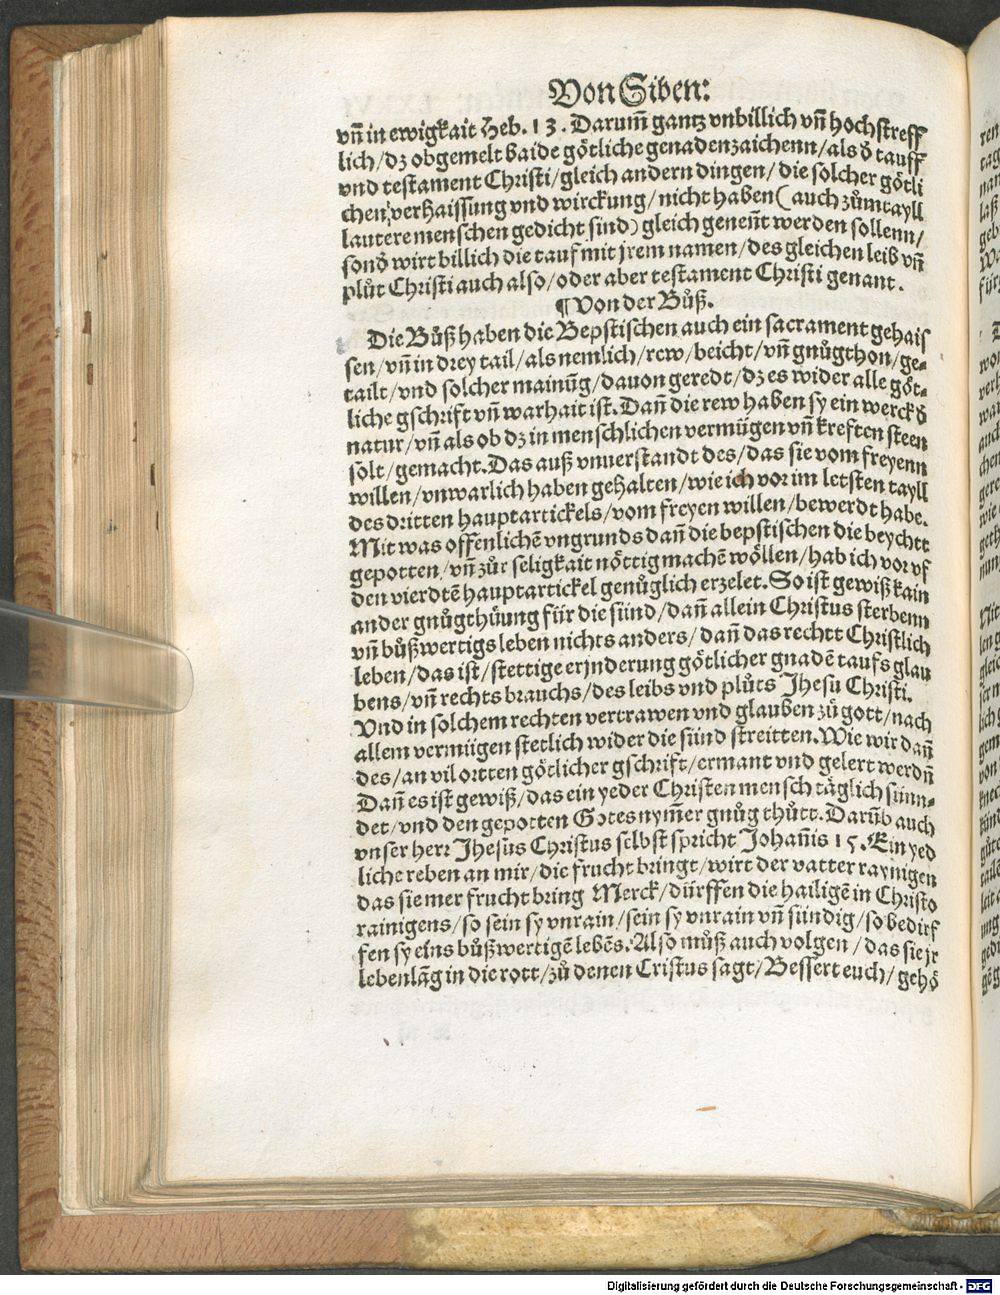 Von Siben:
vn̄ in ewigkait Heb. 13. Darum̄ gantz vnbillich vn̄ hochstreff
lich/dz obgemelt baide götliche genadenzaichenn/als d̄ tauff
vnd testament Christi/gleich andern dingen/die solcher götli
chen verhaissung vnd wirckung/nicht haben (auch zůmtayll
lautere menschen gedicht sind) gleich genen̄t werden sollenn/
sond̄ wirt billich die tauf mit jrem namen/des gleichen leib vn̄
plůt Christi auch also/oder aber testament Christi genant.
¶ Von der Bůß.
Die Bůß haben die Bepstischen auch ein sacrament gehais
sen/vn̄ in drey tail/als nemlich/rew/beicht/vn̄ gnůgthon/ge-
tailt/vnd solcher mainūg/dauon geredt/dz es wider alle göt-
liche gschrift vn̄ warhait ist. Dan̄ die rew haben sy ein werck d̄
natur/vn̄ als ob dz in menschlichen vermügen vn̄ kreften steen
solt/gemacht. Das auß vnuerstandt des/das sie vom freyenn
willen/vnwarlich haben gehalten/wie ich vor im letsten tayll
des dritten hauptartickels/vom freyen willen/bewerdt habe.
Mit was offenlichē vngrunds dan̄ die bepstischen die beychtt
gepotten/vn̄ zůr seligkait nöttig machē wöllen/hab ich vor vf
den vierdtē hauptartickel genůglich erzelet. So ist gewiß kain
ander gnůgthüung für die sünd/dan̄ allein Christus sterbenn
vn̄ bůßwertigs leben nichts anders/dan̄ das rechtt Christlich
leben/das ist/stettige erjnderung götlicher gnadē taufs glau
bens/vn̄ rechts brauchs/des leibs vnd plůts Jhesu Christi.
Vnd in solchem rechten vertrawen vnd glauben zů gott/nach
allem vermügen stetlich wider die sünd streitten. Wie wir dan̄
des/an vil ortten götlicher gschrift/ermant vnd gelert werdn̄
Dan̄ es ist gewiß/das ein yeder Christen mensch täglich sünn-
det/vnd den gepotten Gotes nym̄er gnůg thůtt. Darūb auch
vnser herr Jhesus Christus selbst spricht Johan̄is 15. Ein yed
liche reben an mir/die frucht bringt/wirt der vatter raynigen
das sie mer frucht bring Merck/dürffen die hailigē in Christo
rainigens/so sein sy vnrain/sein sy vnrain vn̄ sündig/so bedirf
fen sy eins bůßwertigē lebēs. Also můß auch volgen/das sie jr
lebenlāg in die rott/zů denen Cristus sagt/Bessert euch/gehö
Digitalisierung gefördert durch die Deutsche Forschungsgemeinschaft - DFG